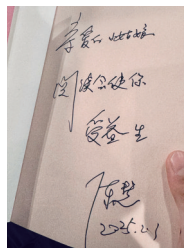 亲爱的姑娘
阅读会使你
受益一生
陈
2025.2.1